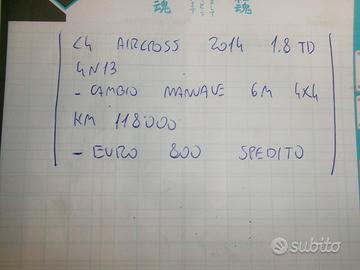 C4 AIRCROSS 2014 1.8 TD
4N13
- CAMBIO MANUALE 6M 4X4
KM 118000
- EURO 800 SPEDITO
subito